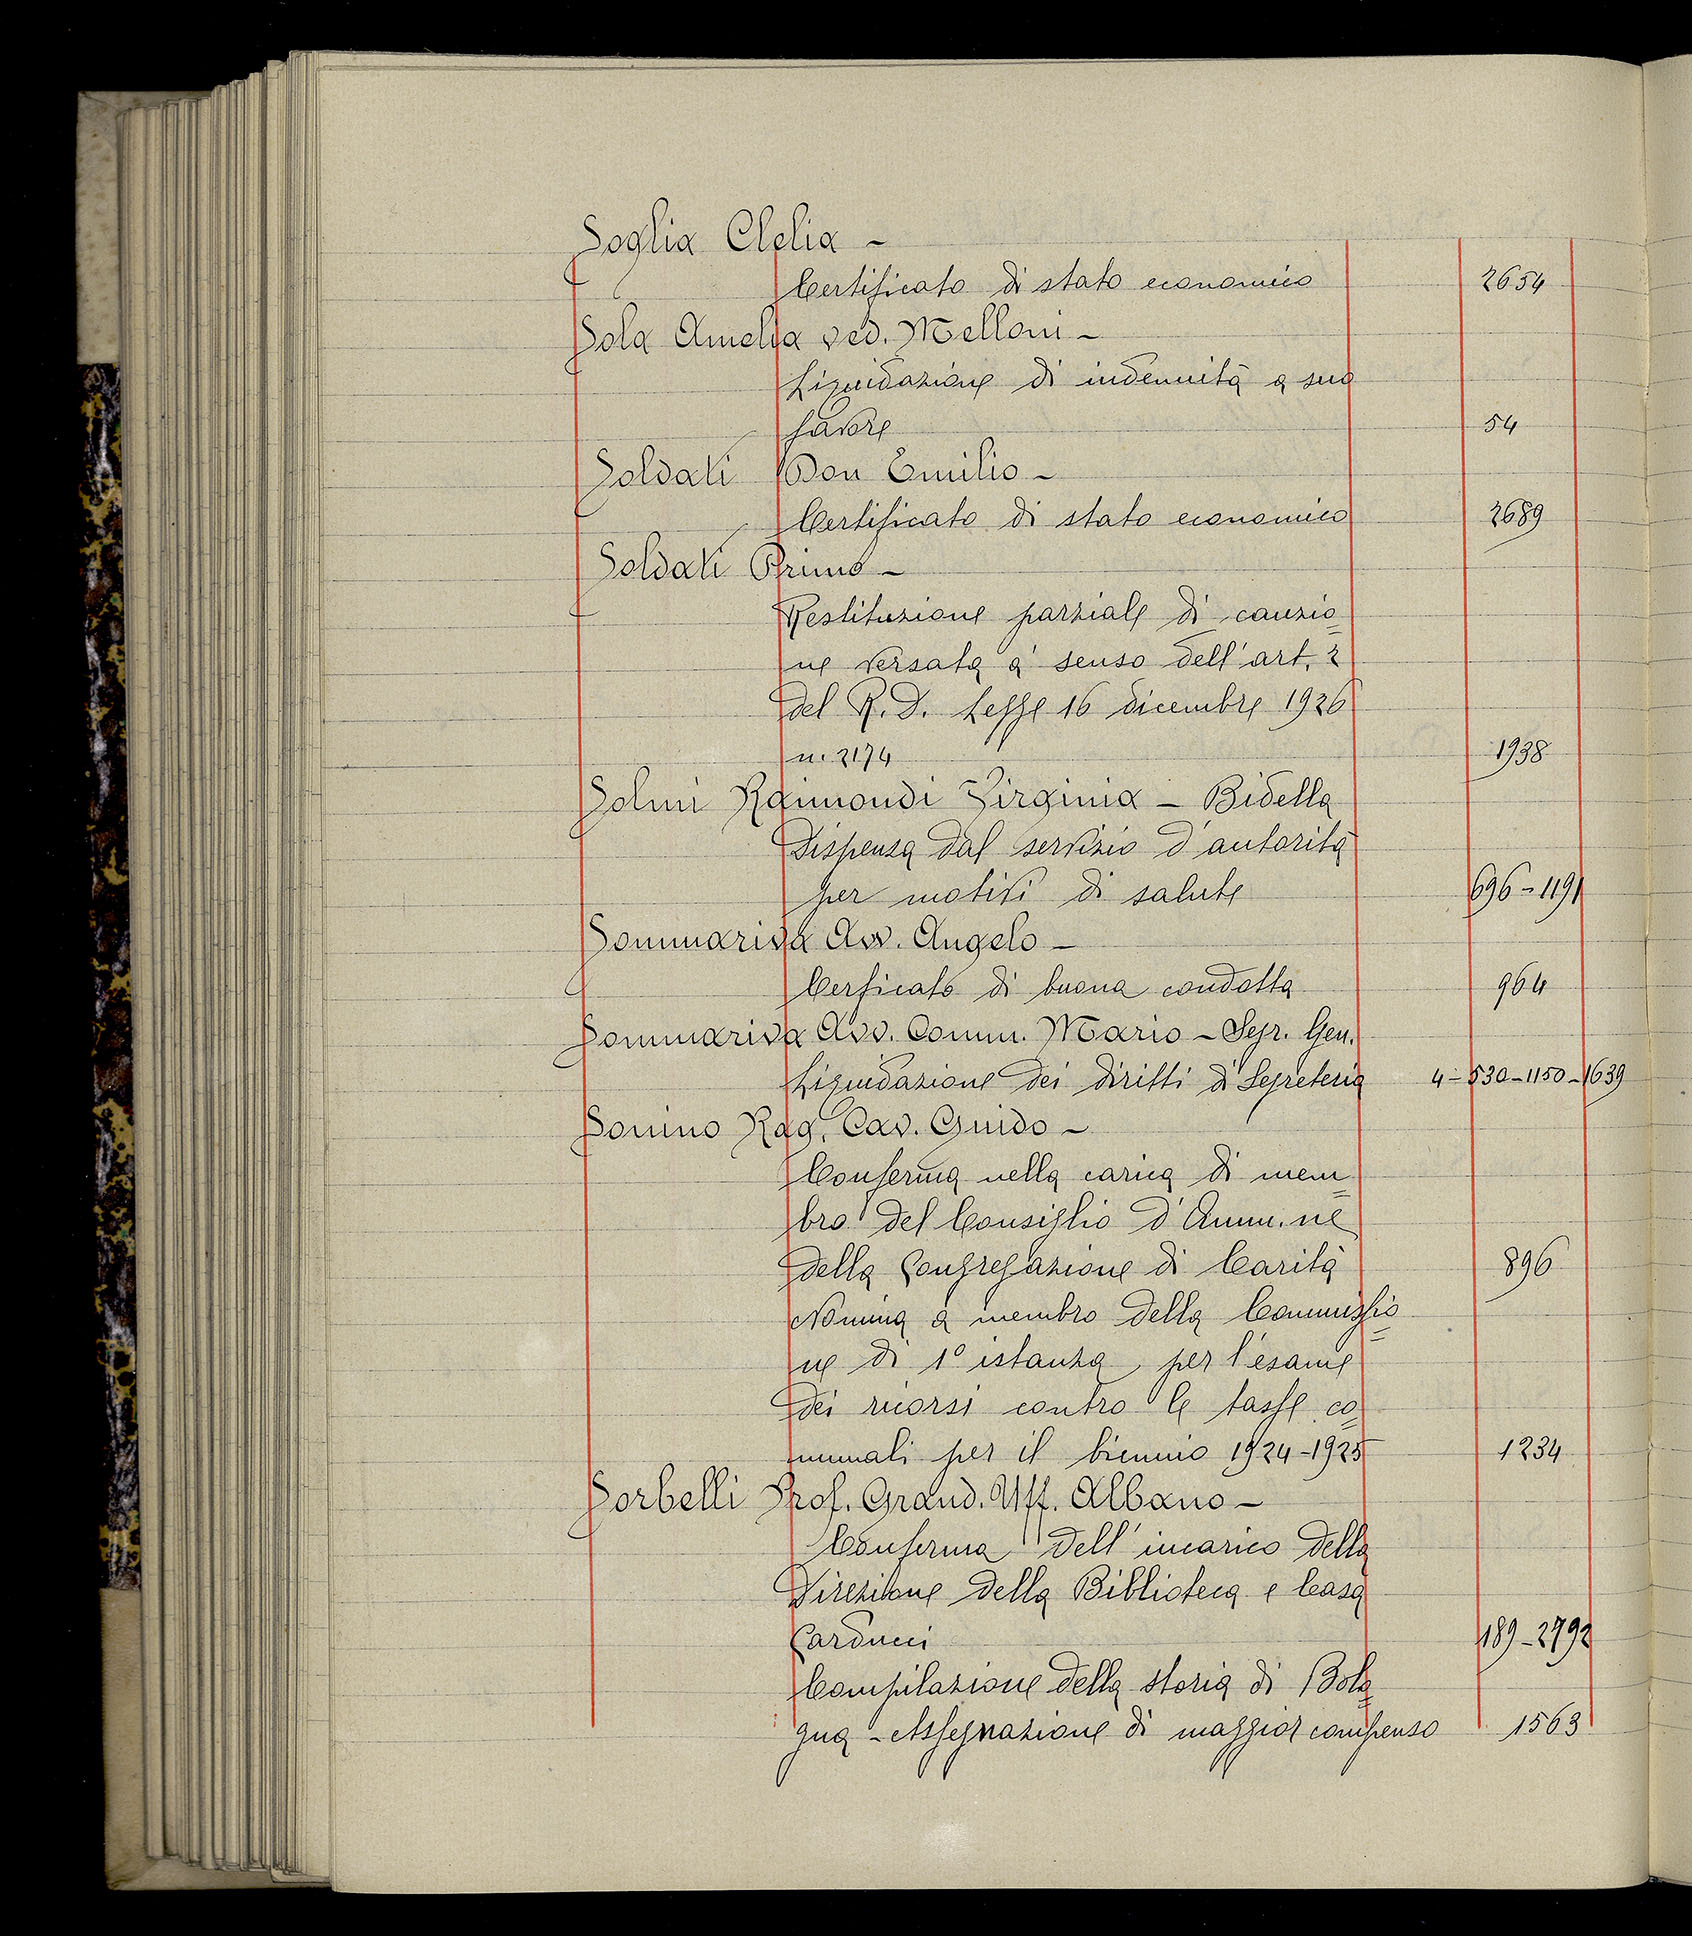 Soglia Clelia -
Certificato di stato economico 2654
Sola Amelia ved. Melloni -
Liquidazione di indennità a suo
favore 54
Soldati Don Emilio -
Certificato di stato economico 2689
Soldati Primo -
Restituzione parziale di cauzio=
ne versata a' senso dell'art. 2
del R. D. Legge 16 dicembre 1926
n. 2174 1938
Solmi Raimondi Virginia - Bidella
Dispensa dal servizio d'autorità
per motivi di salute 696-1191
Sommariva Avv. Angelo -
Cerficato di buona condotta 964
Sommariva Avv. Comm. Mario - Segr. Gen.
Liquidazione dei diritti di Segreteria 4-530-1150-1639
Sonino Rag. Cav. Guido -
Conferma nella carica di mem=
bro del Consiglio d'Amm.ne
della Congregazione di Carità 896
Nomina a membro della Commissio=
ne di 1° istanza per l'esame
dei ricorsi contro le tasse co=
munali per il biennio 1924-1925 1234
Sorbelli Prof. Grand. Uff. Albano -
Conferma dell'incarico della
Direzione della Biblioteca e Casa
Carducci 189-2792
Compilazione della storia di Bolo=
gna - Assegnazione di maggior compenso 1563